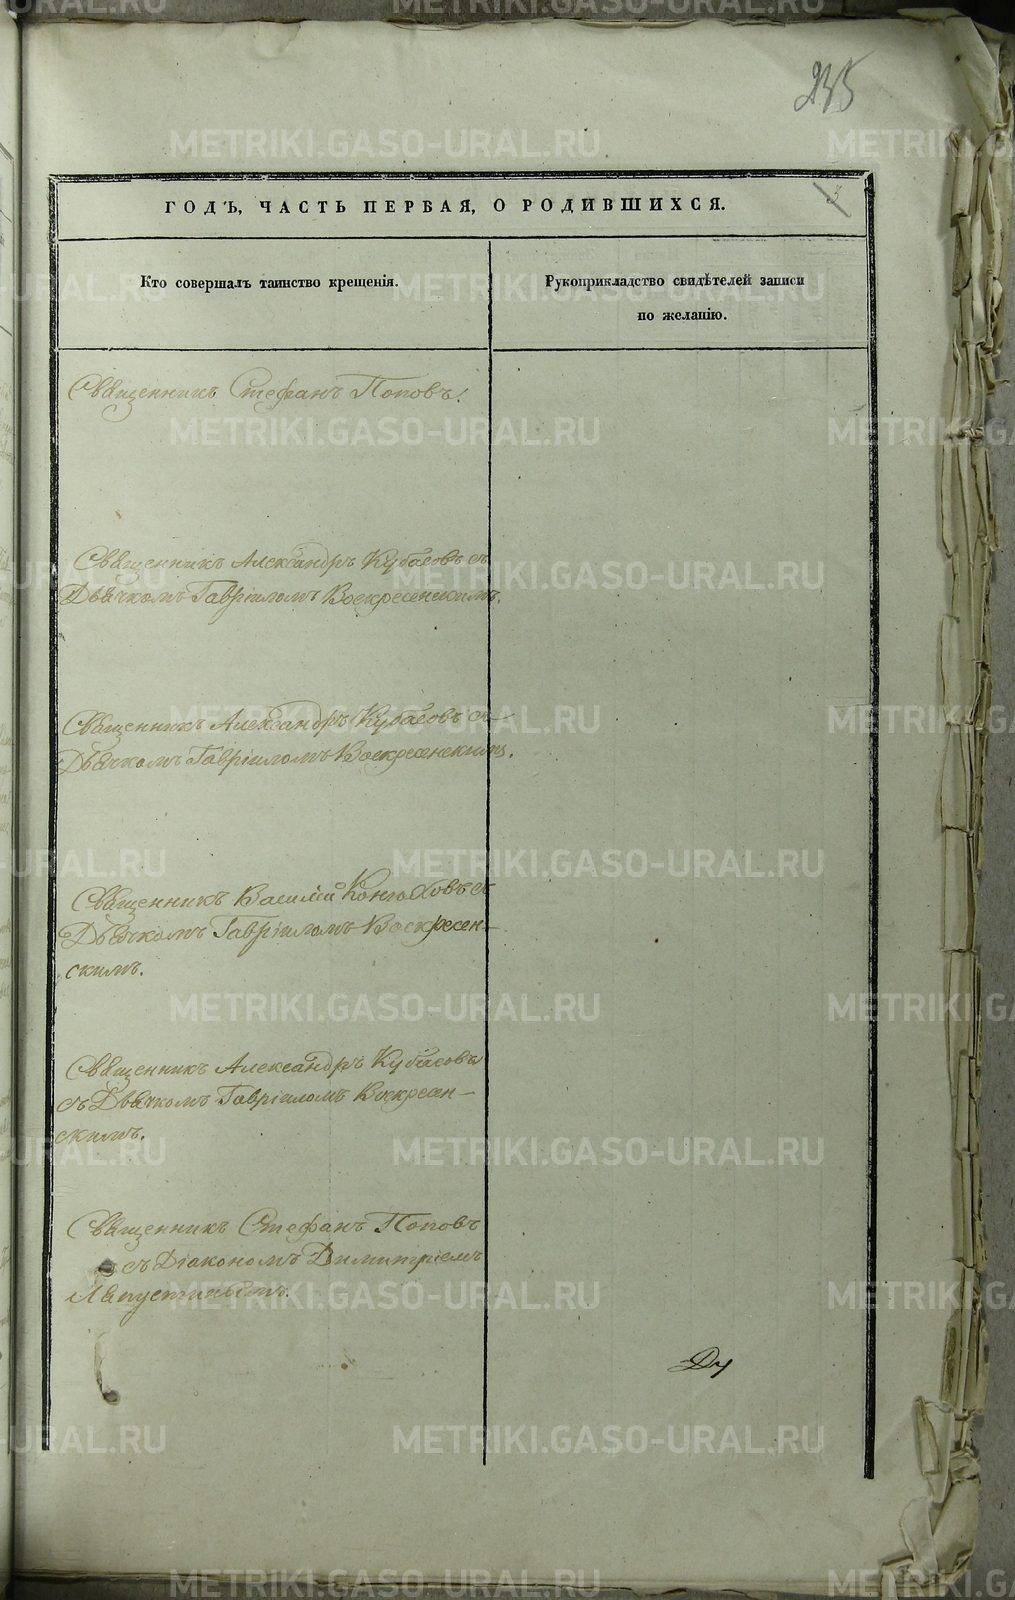 235
3
ГОДЪ, ЧАСТЬ ПЕРВАЯ, О РОДИВШИХСЯ.
Кто совершалъ таинство крещенія.
Рукоприкладство свидѣтелей записи
по желанію.
Священникъ Стефанъ Поповъ.
Священникъ Александръ Кубасовъ съ
Дьячкомъ Гавріиломъ Воскресенскимъ.
Священникъ Александръ Кубасовъ съ
Дьячкомъ Гавріиломъ Воскресенскимъ.
Священникъ Василій съ
Дьячкомъ Гавріиломъ Воскресен-
скимъ.
Священникъ Александръ Кубасовъ
съ Дьячкомъ Гавріиломъ Воскресен-
скимъ.
Священникъ Стефанъ Поповъ
съ Діакономъ Димитріемъ
Лапустинымъ.
METRIKI.GASO-URAL.RU